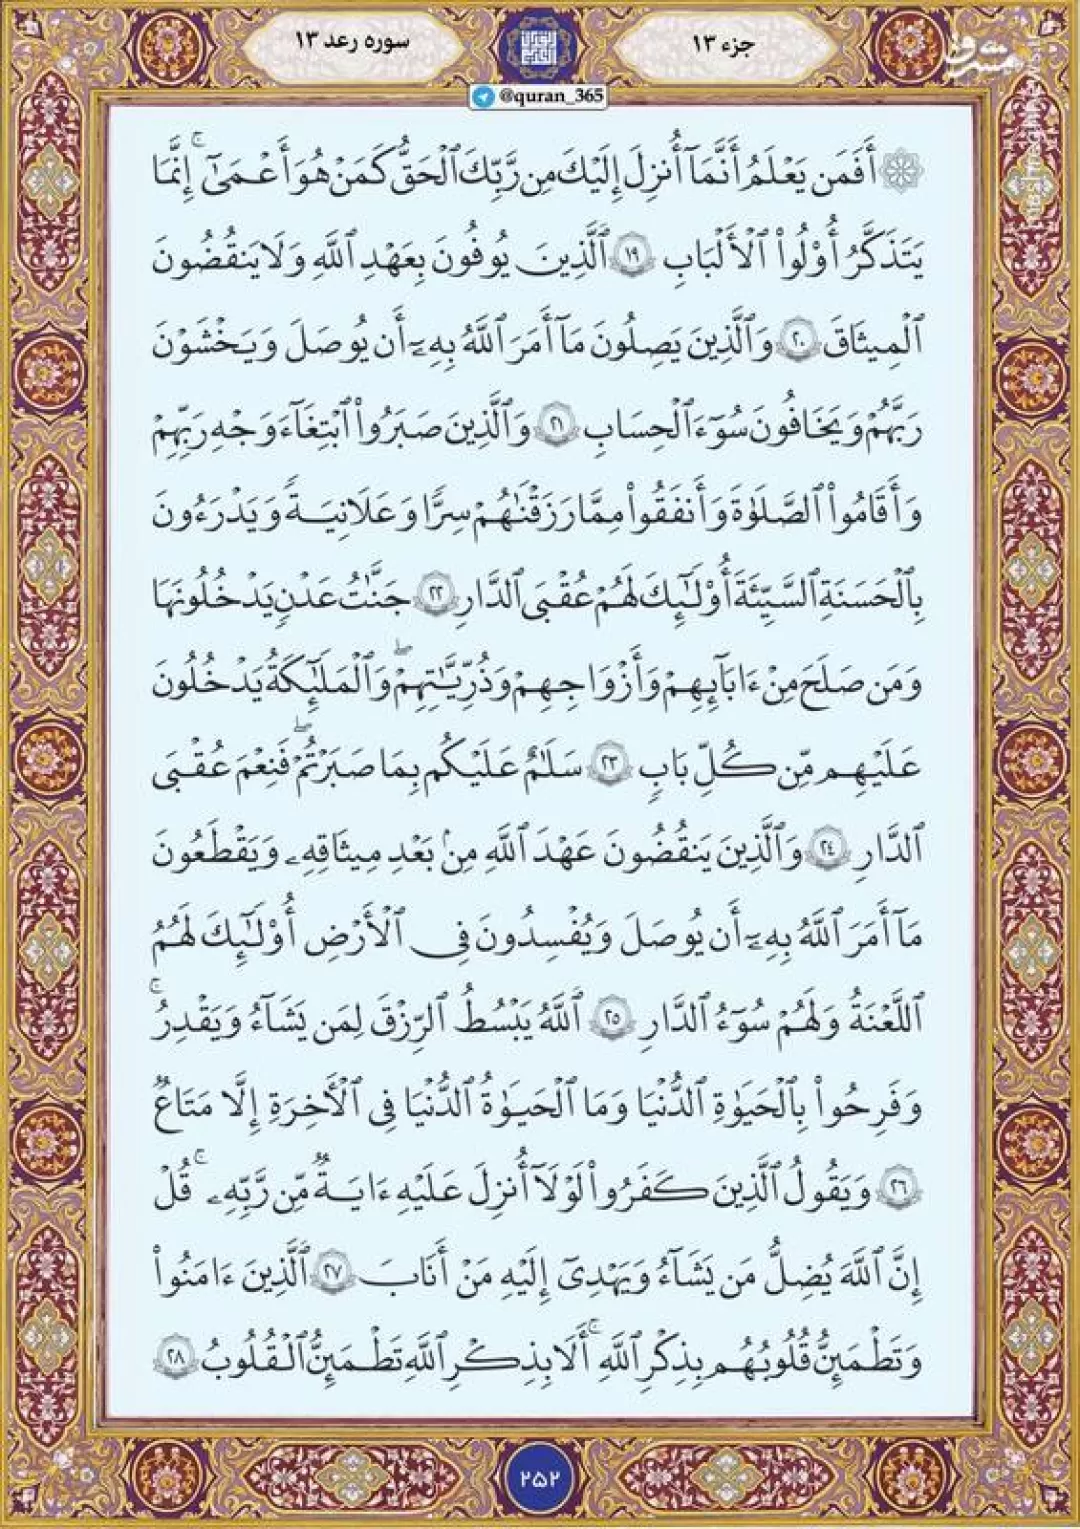 جزء ۱۳
سوره رعد ۱۳
@quran_365
مشرق
mashreghnews
۞ أَفَمَن يَعْلَمُ أَنَّمَآ أُنزِلَ إِلَيْكَ مِن رَّبِّكَ ٱلْحَقُّ كَمَنْ هُوَ أَعْمَىٰٓ ۚ إِنَّمَا
يَتَذَكَّرُ أُو۟لُوا۟ ٱلْأَلْبَابِ ١٩ ٱلَّذِينَ يُوفُونَ بِعَهْدِ ٱللَّهِ وَلَا يَنقُضُونَ
ٱلْمِيثَاقَ ٢٠ وَٱلَّذِينَ يَصِلُونَ مَآ أَمَرَ ٱللَّهُ بِهِۦٓ أَن يُوصَلَ وَيَخْشَوْنَ
رَبَّهُمْ وَيَخَافُونَ سُوٓءَ ٱلْحِسَابِ ٢١ وَٱلَّذِينَ صَبَرُوا۟ ٱبْتِغَآءَ وَجْهِ رَبِّهِمْ
وَأَقَامُوا۟ ٱلصَّلَوٰةَ وَأَنفَقُوا۟ مِمَّا رَزَقْنَٰهُمْ سِرًّا وَعَلَانِيَةً وَيَدْرَءُونَ
بِٱلْحَسَنَةِ ٱلسَّيِّئَةَ أُو۟لَٰٓئِكَ لَهُمْ عُقْبَى ٱلدَّارِ ٢٢ جَنَّٰتُ عَدْنٍ يَدْخُلُونَهَا
وَمَن صَلَحَ مِنْ ءَابَآئِهِمْ وَأَزْوَاجِهِمْ وَذُرِّيَّٰتِهِمْ ۖ وَٱلْمَلَٰٓئِكَةُ يَدْخُلُونَ
عَلَيْهِم مِّن كُلِّ بَابٍ ٢٣ سَلَٰمٌ عَلَيْكُم بِمَا صَبَرْتُمْ ۖ فَنِعْمَ عُقْبَى
ٱلدَّارِ ٢٤ وَٱلَّذِينَ يَنقُضُونَ عَهْدَ ٱللَّهِ مِنۢ بَعْدِ مِيثَاقِهِۦ وَيَقْطَعُونَ
مَآ أَمَرَ ٱللَّهُ بِهِۦٓ أَن يُوصَلَ وَيُفْسِدُونَ فِى ٱلْأَرْضِ أُو۟لَٰٓئِكَ لَهُمُ
ٱللَّعْنَةُ وَلَهُمْ سُوٓءُ ٱلدَّارِ ٢٥ ٱللَّهُ يَبْسُطُ ٱلرِّزْقَ لِمَن يَشَآءُ وَيَقْدِرُ ۚ
وَفَرِحُوا۟ بِٱلْحَيَوٰةِ ٱلدُّنْيَا وَمَا ٱلْحَيَوٰةُ ٱلدُّنْيَا فِى ٱلْأَخِرَةِ إِلَّا مَتَٰعٌ
٢٦ وَيَقُولُ ٱلَّذِينَ كَفَرُوا۟ لَوْلَآ أُنزِلَ عَلَيْهِ ءَايَةٌ مِّن رَّبِّهِۦ ۗ قُلْ
إِنَّ ٱللَّهَ يُضِلُّ مَن يَشَآءُ وَيَهْدِىٓ إِلَيْهِ مَنْ أَنَابَ ٢٧ ٱلَّذِينَ ءَامَنُوا۟
وَتَطْمَئِنُّ قُلُوبُهُم بِذِكْرِ ٱللَّهِ ۗ أَلَا بِذِكْرِ ٱللَّهِ تَطْمَئِنُّ ٱلْقُلُوبُ ٢٨
۲۵۲